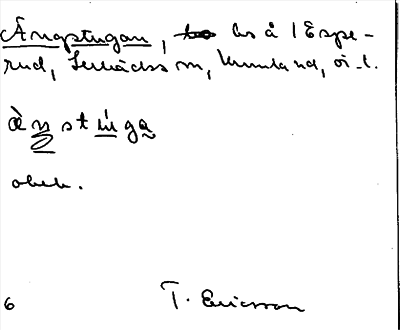 Ängstugan, hs å 1 Espe-
rud, Lerbäcks sn, Kumla hd, ö. l.
àŋstu̇̀ga
obeb.
T. Ericsson
6